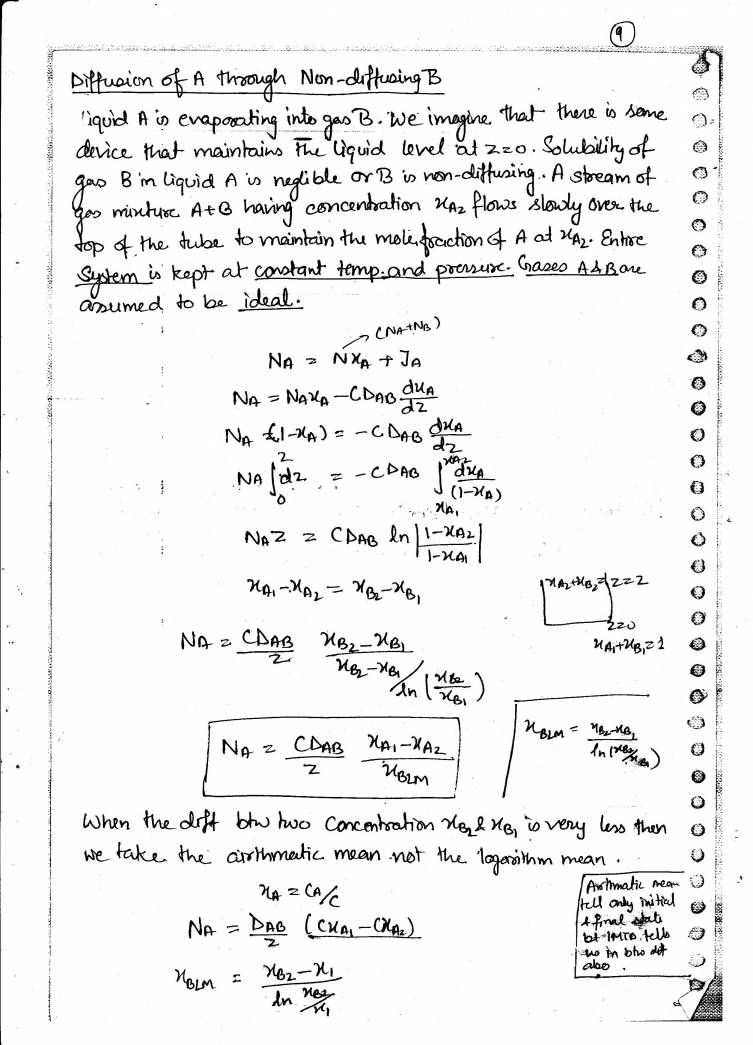 9
Diffusion of A through Non-diffusing B
liquid A is evaporating into gas B. We imagine that there is some
device that maintains The liquid level at z=0. Solubility of
gas B in liquid A is neglible or B is non-diffusing. A stream of
gas mixture A+B having concentration x_A2 flows slowly over the
top of the tube to maintain the mole fraction of A at x_A2. Entire
System is kept at constant temp. and pressure. Gases A & B are
assumed to be ideal.
(N_A+N_B)
N_A = N x_A + J_A
N_A = N_A x_A - C D_AB dx_A/dz
N_A (1-x_A) = - C D_AB dx_A/dz
N_A ∫_0^z dz = - C D_AB ∫_{x_A1}^{x_A2} dx_A/(1-x_A)
N_A z = C D_AB ln |1-x_A2 / 1-x_A1|
x_A1 - x_A2 = x_B2 - x_B1
x_A2+x_B2=1 z=z
z=0
x_A1+x_B1=1
N_A = C D_AB/z x_B2-x_B1 / x_B2-x_B1/ln(x_B2/x_B1)
N_A = C D_AB/z x_A1-x_A2/x_BLM
x_BLM = x_B2-x_B1/ln(x_B2/x_B1)
When the diff btw two concentration x_B2 & x_B1 is very less then
we take the airthmatic mean not the logarithm mean.
x_A = C_A/C
N_A = D_AB/z (Cx_A1 - Cx_A2)
x_BLM = x_B2 - x_1 / ln x_B2/x_1
Arthmatic mean
tell only initial
& final state
bt LMTD tells
us in btw diff
also.